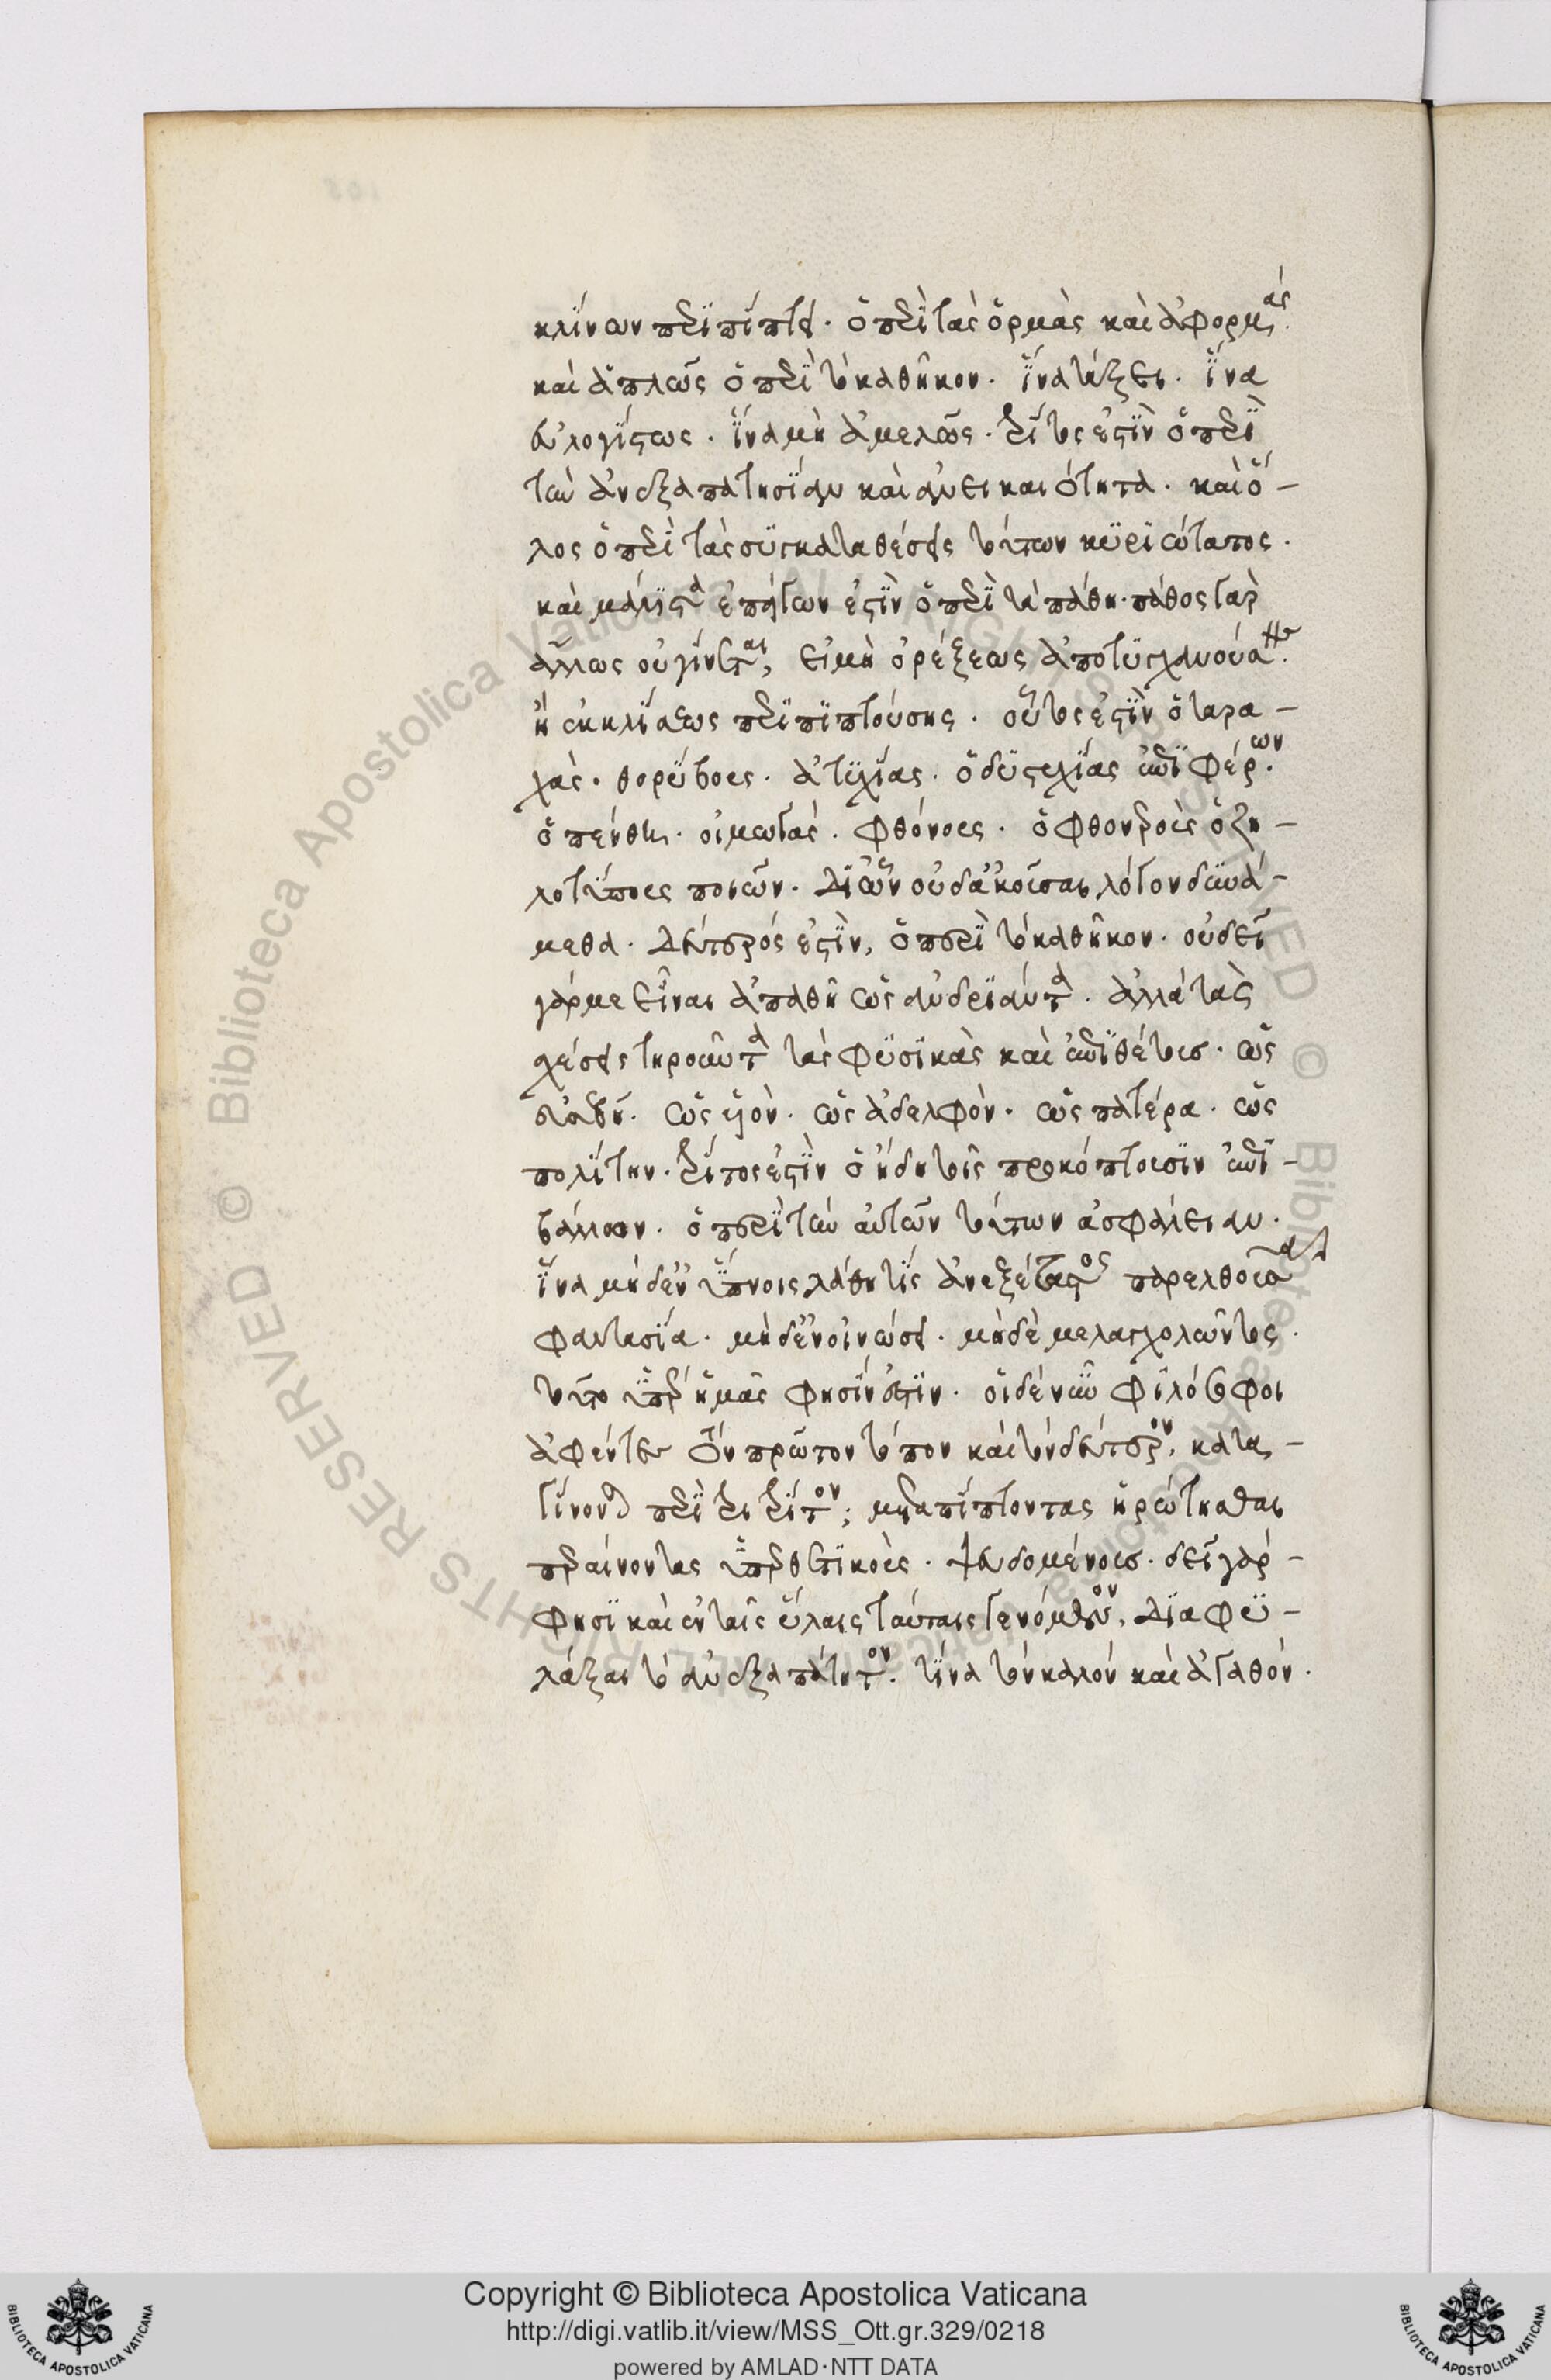 κλίνων περιπίπτη· ὁ περὶ τὰς ὁρμὰς καὶ ἀφορμάς·
καὶ ἁπλῶς ὁ περὶ τὸ καθῆκον· ἵνα τάξει· ἵνα
εὐλογίστως· ἵνα μὴ ἀμελῶς· τρίτος ἐστὶν ὁ περὶ
τὴν ἀνεξαπατησίαν καὶ ἀνεικαιότητα· καὶ ὅ-
λος ὁ περὶ τὰς συγκαταθέσεις τούτων κυριώτατος·
καὶ μάλιστα ἐπείγων ἐστὶν ὁ περὶ τὰ πάθη· πάθος γὰρ
ἄλλως οὐ γίνεται, εἰ μὴ ὀρέξεως ἀποτυγχανούσης·
ἢ ἐκκλίσεως περιπιπτούσης· οὗτος ἐστὶν ὁ ταρα-
χὰς· θορύβους· ἀτυχίας· ὁ δυστυχίας ἐπιφέρων·
ὁ πένθη· οἰμωγὰς· φθόνους· ὁ φθονεροὺς ὁ ζη-
λοτύπους ποιῶν· δι' ὧν οὐδ' ἀκοῦσαι λόγον δυνά-
μεθα· δεύτερός ἐστιν, ὁ περὶ τὸ καθῆκον· οὐ δεῖ
γάρ με εἶναι ἀπαθῆ ὡς ἀνδριάντα· ἀλλὰ τὰς
σχέσεις τηροῦντα τὰς φυσικὰς καὶ ἐπιθέτους· ὡς
εὐσεβῆ· ὡς υἱὸν· ὡς ἀδελφὸν· ὡς πατέρα· ὡς
πολίτην· τρίτος ἐστὶν ὁ ἤδη τοῖς προκόπτουσιν ἐπι-
βάλλων· ὁ περὶ τὴν αὐτῶν τούτων ἀσφάλειαν·
ἵνα μηδ' ἐν ὕπνοις λάθῃ τὶς ἀνεξέταστος παρελθοῦσα
φαντασία· μηδ' ἐν οἰνώσει· μηδὲ μελαγχολῶντος·
τοῦτο ὑπὲρ ἡμᾶς φησίν ἐστιν· οἱ δὲ νῦν φιλόσοφοι
ἀφέντες τὸν πρῶτον τόπον καὶ τὸν δεύτερον, κατα-
γίνονται περὶ τὸν τρίτον; μεταπίπτοντας ἠρώτησθαι
περαίνοντας ὑποθετικοὺς· ψευδομένους· δεῖ γάρ-
φησι καὶ ἐν ταῖς ὕλαις ταύταις γενόμενον, διαφυ-
λάξαι τὸ ἀνεξαπάτητον· τίνα τὸν καλὸν καὶ ἀγαθόν·
Copyright © Biblioteca Apostolica Vaticana
http://digi.vatlib.it/view/MSS_Ott.gr.329/0218
powered by AMLAD·NTT DATA